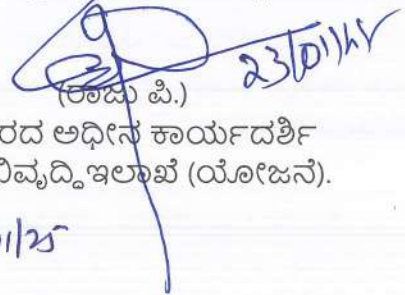 23/01/25
(ರಾಜು ಪಿ.)
ರದ ಅಧೀನ ಕಾರ್ಯದರ್ಶಿ
ನಿವೃದ್ಧಿ ಇಲಾಖೆ (ಯೋಜನೆ).
1/25